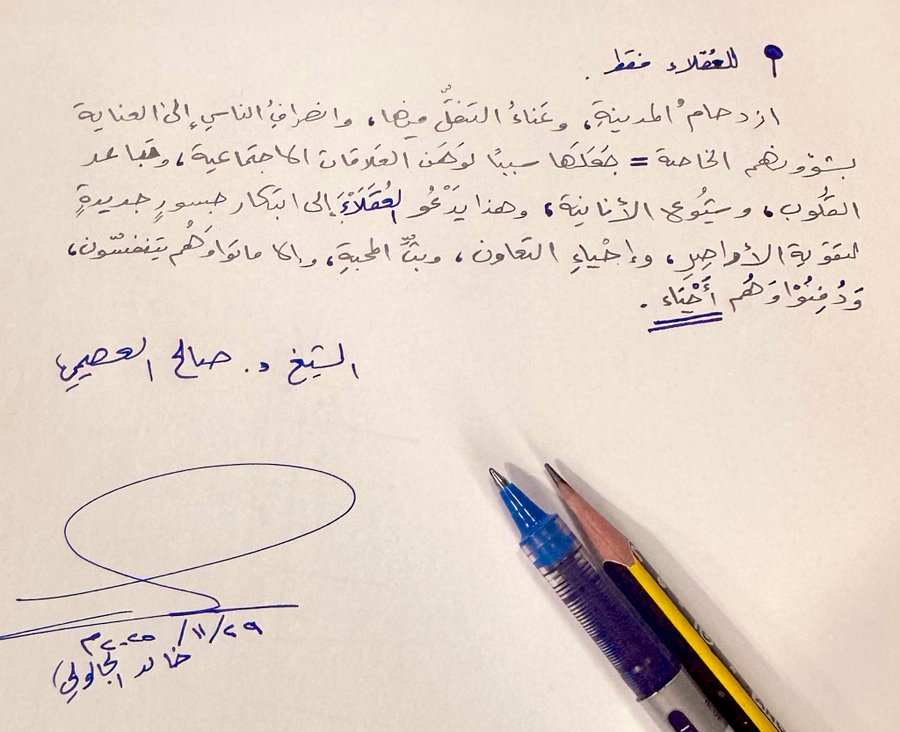 للعُقلاء فقط.
ازدحامُ المدينةِ، وعَناءُ التنقلِّ فيها، وانصرافُ الناسِ إلى العناية
بشؤونهم الخاصة = جَعَلَها سببًا لوَهَن العَلاقات الاجتماعية، وتباعد
القُلوب، وشُيوع الأنانية، وهذا يَدْعُو العُقَلَاءَ إلى ابتكار جسورٍ جديدةٍ
لتقوية الأواصِرِ، وإحْياءِ التعاون، وبثِّ المحبةِ، وإلا ماتوا وَهُم يتنفسّون،
وَدُفِنُوْا وَهُم أَحْيَاء.
الشيخ د. صالح العصيمي
٢٩/١١/٢٠٢٥م
خالد الجالولي